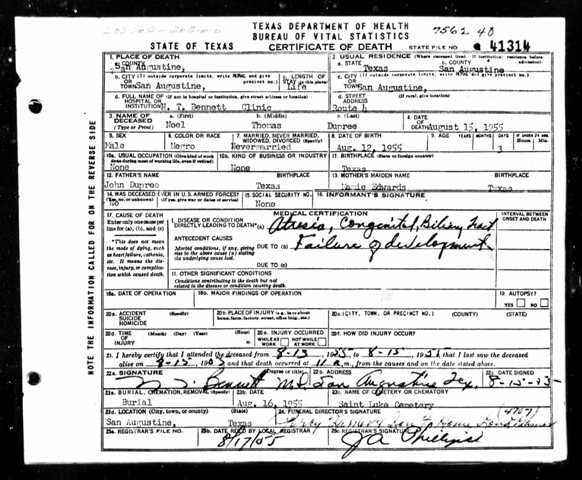 TEXAS DEPARTMENT OF HEALTH
BUREAU OF VITAL STATISTICS
7562 40
STATE OF TEXAS
CERTIFICATE OF DEATH
STATE FILE NO. 41314
1. PLACE OF DEATH
2. USUAL RESIDENCE (Where deceased lived. If institution: residence before admission)
a. COUNTY San Augustine,
a. STATE Texas
b. COUNTY San Augustine
b. CITY (If outside corporate limits, write RURAL and give precinct no.)
OR TOWN San Augustine,
c. LENGTH OF STAY Life
c. CITY (If outside corporate limits, write RURAL and give precinct no.)
OR TOWN San Augustine,
d. FULL NAME OF (If not in hospital or institution, give street address or location)
HOSPITAL OR INSTITUTION N. T. Bennett Clinic
d. STREET ADDRESS (If rural, give location)
Route 4
3. NAME OF DECEASED (Type or Print)
a. (First) Noel
b. (Middle) Thomas
c. (Last) Dupree
4. DATE OF DEATH August 15, 1955
5. SEX Male
6. COLOR OR RACE Negro
7. MARRIED, NEVER MARRIED, WIDOWED, DIVORCED (Specify) Nevermarried
8. DATE OF BIRTH Aug. 12, 1955
9. AGE YEARS MONTHS DAYS 3
10a. USUAL OCCUPATION None
10b. KIND OF BUSINESS OR INDUSTRY None
11. BIRTHPLACE (State or foreign country) Texas
12. FATHER'S NAME John Dupree
BIRTHPLACE Texas
13. MOTHER'S MAIDEN NAME Edwards
BIRTHPLACE Texas
14. WAS DECEASED EVER IN U.S. ARMED FORCES? No
15. SOCIAL SECURITY NO. None
16. INFORMANT'S SIGNATURE
MEDICAL CERTIFICATION
17. CAUSE OF DEATH
Enter only one cause per line for (a), (b), and (c)
I. DISEASE OR CONDITION DIRECTLY LEADING TO DEATH* (a) Atresia, Congenital, Biliary Tract
INTERVAL BETWEEN ONSET AND DEATH
*This does not mean the mode of dying, such as heart failure, asthenia, etc. It means the disease, injury, or complication which caused death.
ANTECEDENT CAUSES
Morbid conditions, if any, giving rise to the above cause (a) stating the underlying cause last.
DUE TO (b) Failure of development
DUE TO (c)
II. OTHER SIGNIFICANT CONDITIONS
Conditions contributing to the death but not related to the disease or condition causing death.
18a. DATE OF OPERATION
18b. MAJOR FINDINGS OF OPERATION
19. AUTOPSY?
YES NO
20a. ACCIDENT SUICIDE HOMICIDE (Specify)
20b. PLACE OF INJURY (e.g., in or about home, farm, factory, street, office bldg., etc.)
20c. (CITY, TOWN, OR PRECINCT NO.) (COUNTY) (STATE)
20d. TIME OF INJURY (Month) (Day) (Year) (Hour)
20e. INJURY OCCURRED WHILE AT WORK NOT WHILE AT WORK
20f. HOW DID INJURY OCCUR?
21. I hereby certify that I attended the deceased from 8-13 1955, to 8-15, 1955, that I last saw the deceased
alive on 8-15, 1955 and that death occurred at 11 a m., from the causes and on the date stated above.
22a. SIGNATURE N. T. Bennett
(Degree or title) M.D.
22b. ADDRESS San Augustine Tex.
22c. DATE SIGNED 8-15-55
23a. BURIAL, CREMATION, REMOVAL (Specify) Burial
23b. DATE Aug. 16, 1955
23c. NAME OF CEMETERY OR CREMATORY Saint Luke Cemetery
23d. LOCATION (City, town, or county) (State)
San Augustine, Texas
24. FUNERAL DIRECTOR'S SIGNATURE
25a. REGISTRAR'S FILE NO.
25b. DATE REC'D BY LOCAL REGISTRAR 8/17/55
25c. REGISTRAR'S SIGNATURE
J A Phillips
NOTE THE INFORMATION CALLED FOR ON THE REVERSE SIDE